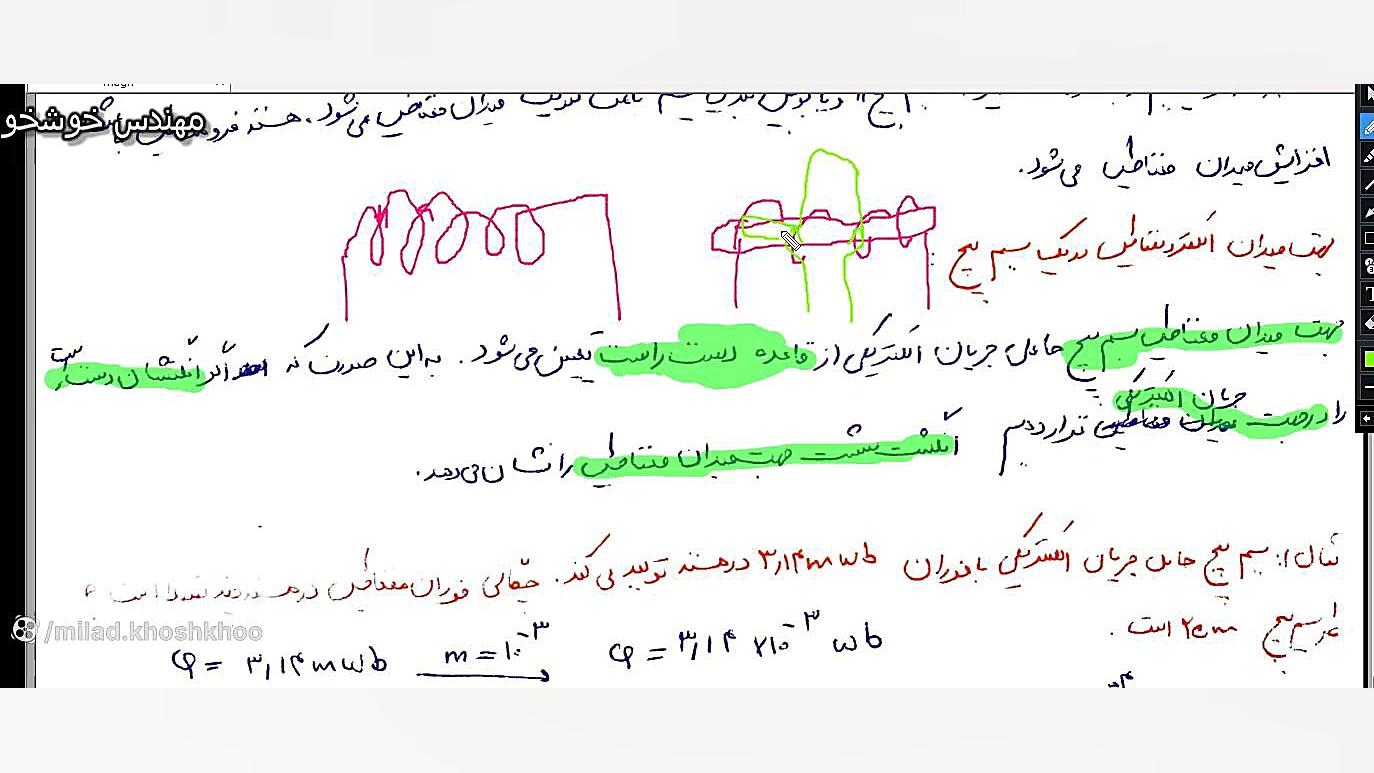 magn
مهندس خوشخو
میدان مغناطیسی می‌شود. هسته
افزایش میدان مغناطیسی می‌شود.
جهت میدان الکترومغناطیسی در یک سیم پیچ :
جهت میدان مغناطیسی سیم پیچ حامل جریان الکتریکی از قاعده دست راست تعیین می‌شود. به این صورت که اگر انگشتان دست راست
را در جهت جریان الکتریکی قرار دهیم انگشت شست جهت میدان مغناطیسی را نشان می‌دهد.
مثال ۱: سیم پیچ حامل جریان الکتریکی با فوران ۳,۱۴ mwb در هسته تولید می کند. چگالی فوران مغناطیسی در هسته
سیم پیچ ۲cm است.
/milad.khoshkhoo
φ = ۳,۱۴ mwb m = ۱۰⁻³ φ = ۳,۱۴ ×۱۰⁻³ wb